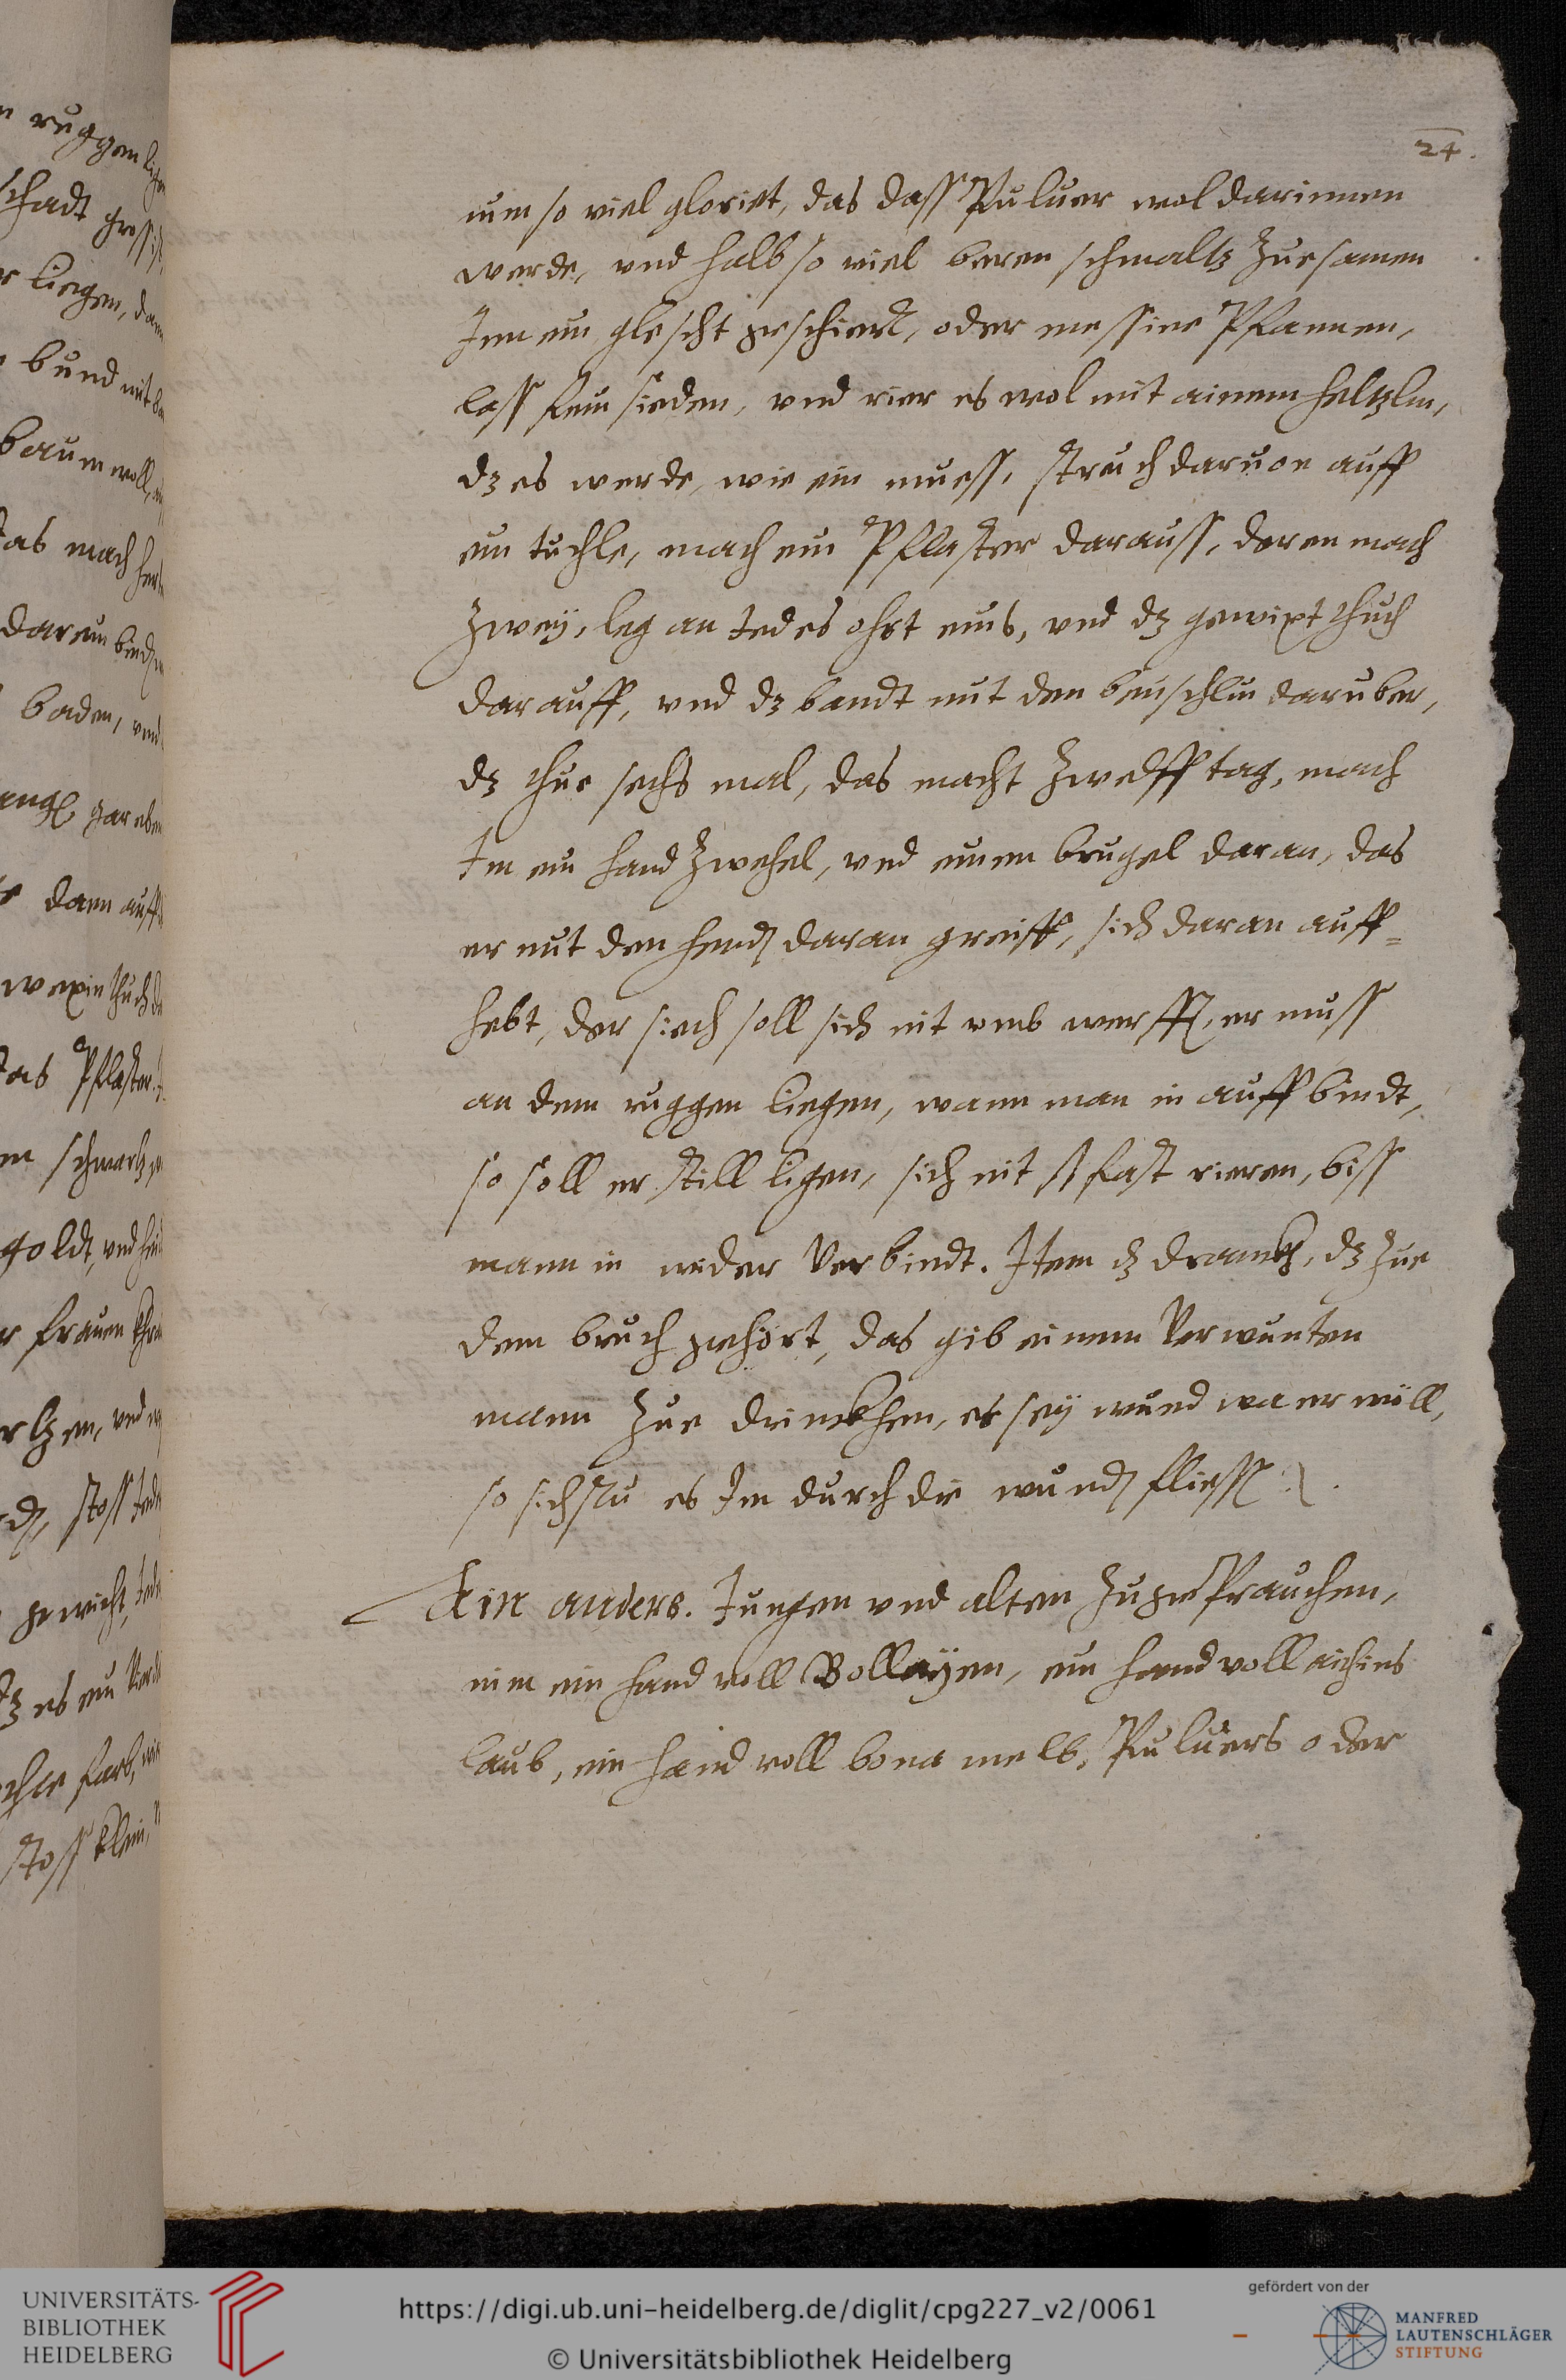 24.
nim so viel gloriet, das dass Puluer wol darinnen
werde, vnd halb so viel beren schmaltz zuesamen
Inn ein glescht geschierr, oder messine Pfannen,
lass fein sieden, vnd rier es wol mit ainem heltzlin,
dz es werde, wie ein muess, streich daruon auff
ein tuchle, mach ein Pflaster darauss, deren mach
zwey, leg an Iedes ohrt eins, vnd dz gewixt thuch
darauff, vnd dz bandt mit den beuschlin daruber,
dz thue sechs mal, das macht zwelff tag, mach
Im ein hand zwehel, vnd einen brugel daran, das
er mit den hend daran greiff, sich daran auff=
hebt, der siech soll sich nit vmb werffen, er muss
an dem ruggen liegen, wann man in auff bindt,
so soll er still ligen, sich nit fast rieren, biss
mann in wider Verbindt. Item dz dranckh, dz zue
dem bruch gehört, das gib einem Verwunten
mann zue drinckhen, er sey wund wa er wöll,
so sichstu es Im durch die wunden fliessen
Ein anders. Jungen vnd alten zugeprauchen,
nim ein hand voll Bollayen, ein hand voll aichins
laub, ein hand voll bona melb, Puluers oder
n ruggen
schadt
r liegen, dann
bund mit
baumwoll,
das mach
darein binden
baden, vnd
gar eben
dann auff
wexin thuch
das Pflaster
schmaltz
goldt, vnd
r frauen
vnd
stoss
gewicht,
dz es ein
farb, wie
stoss klein,
UNIVERSITÄTS-
BIBLIOTHEK
HEIDELBERG
https://digi.ub.uni-heidelberg.de/diglit/cpg227_v2/0061
© Universitätsbibliothek Heidelberg
gefördert von der
MANFRED
LAUTENSCHLÄGER
STIFTUNG